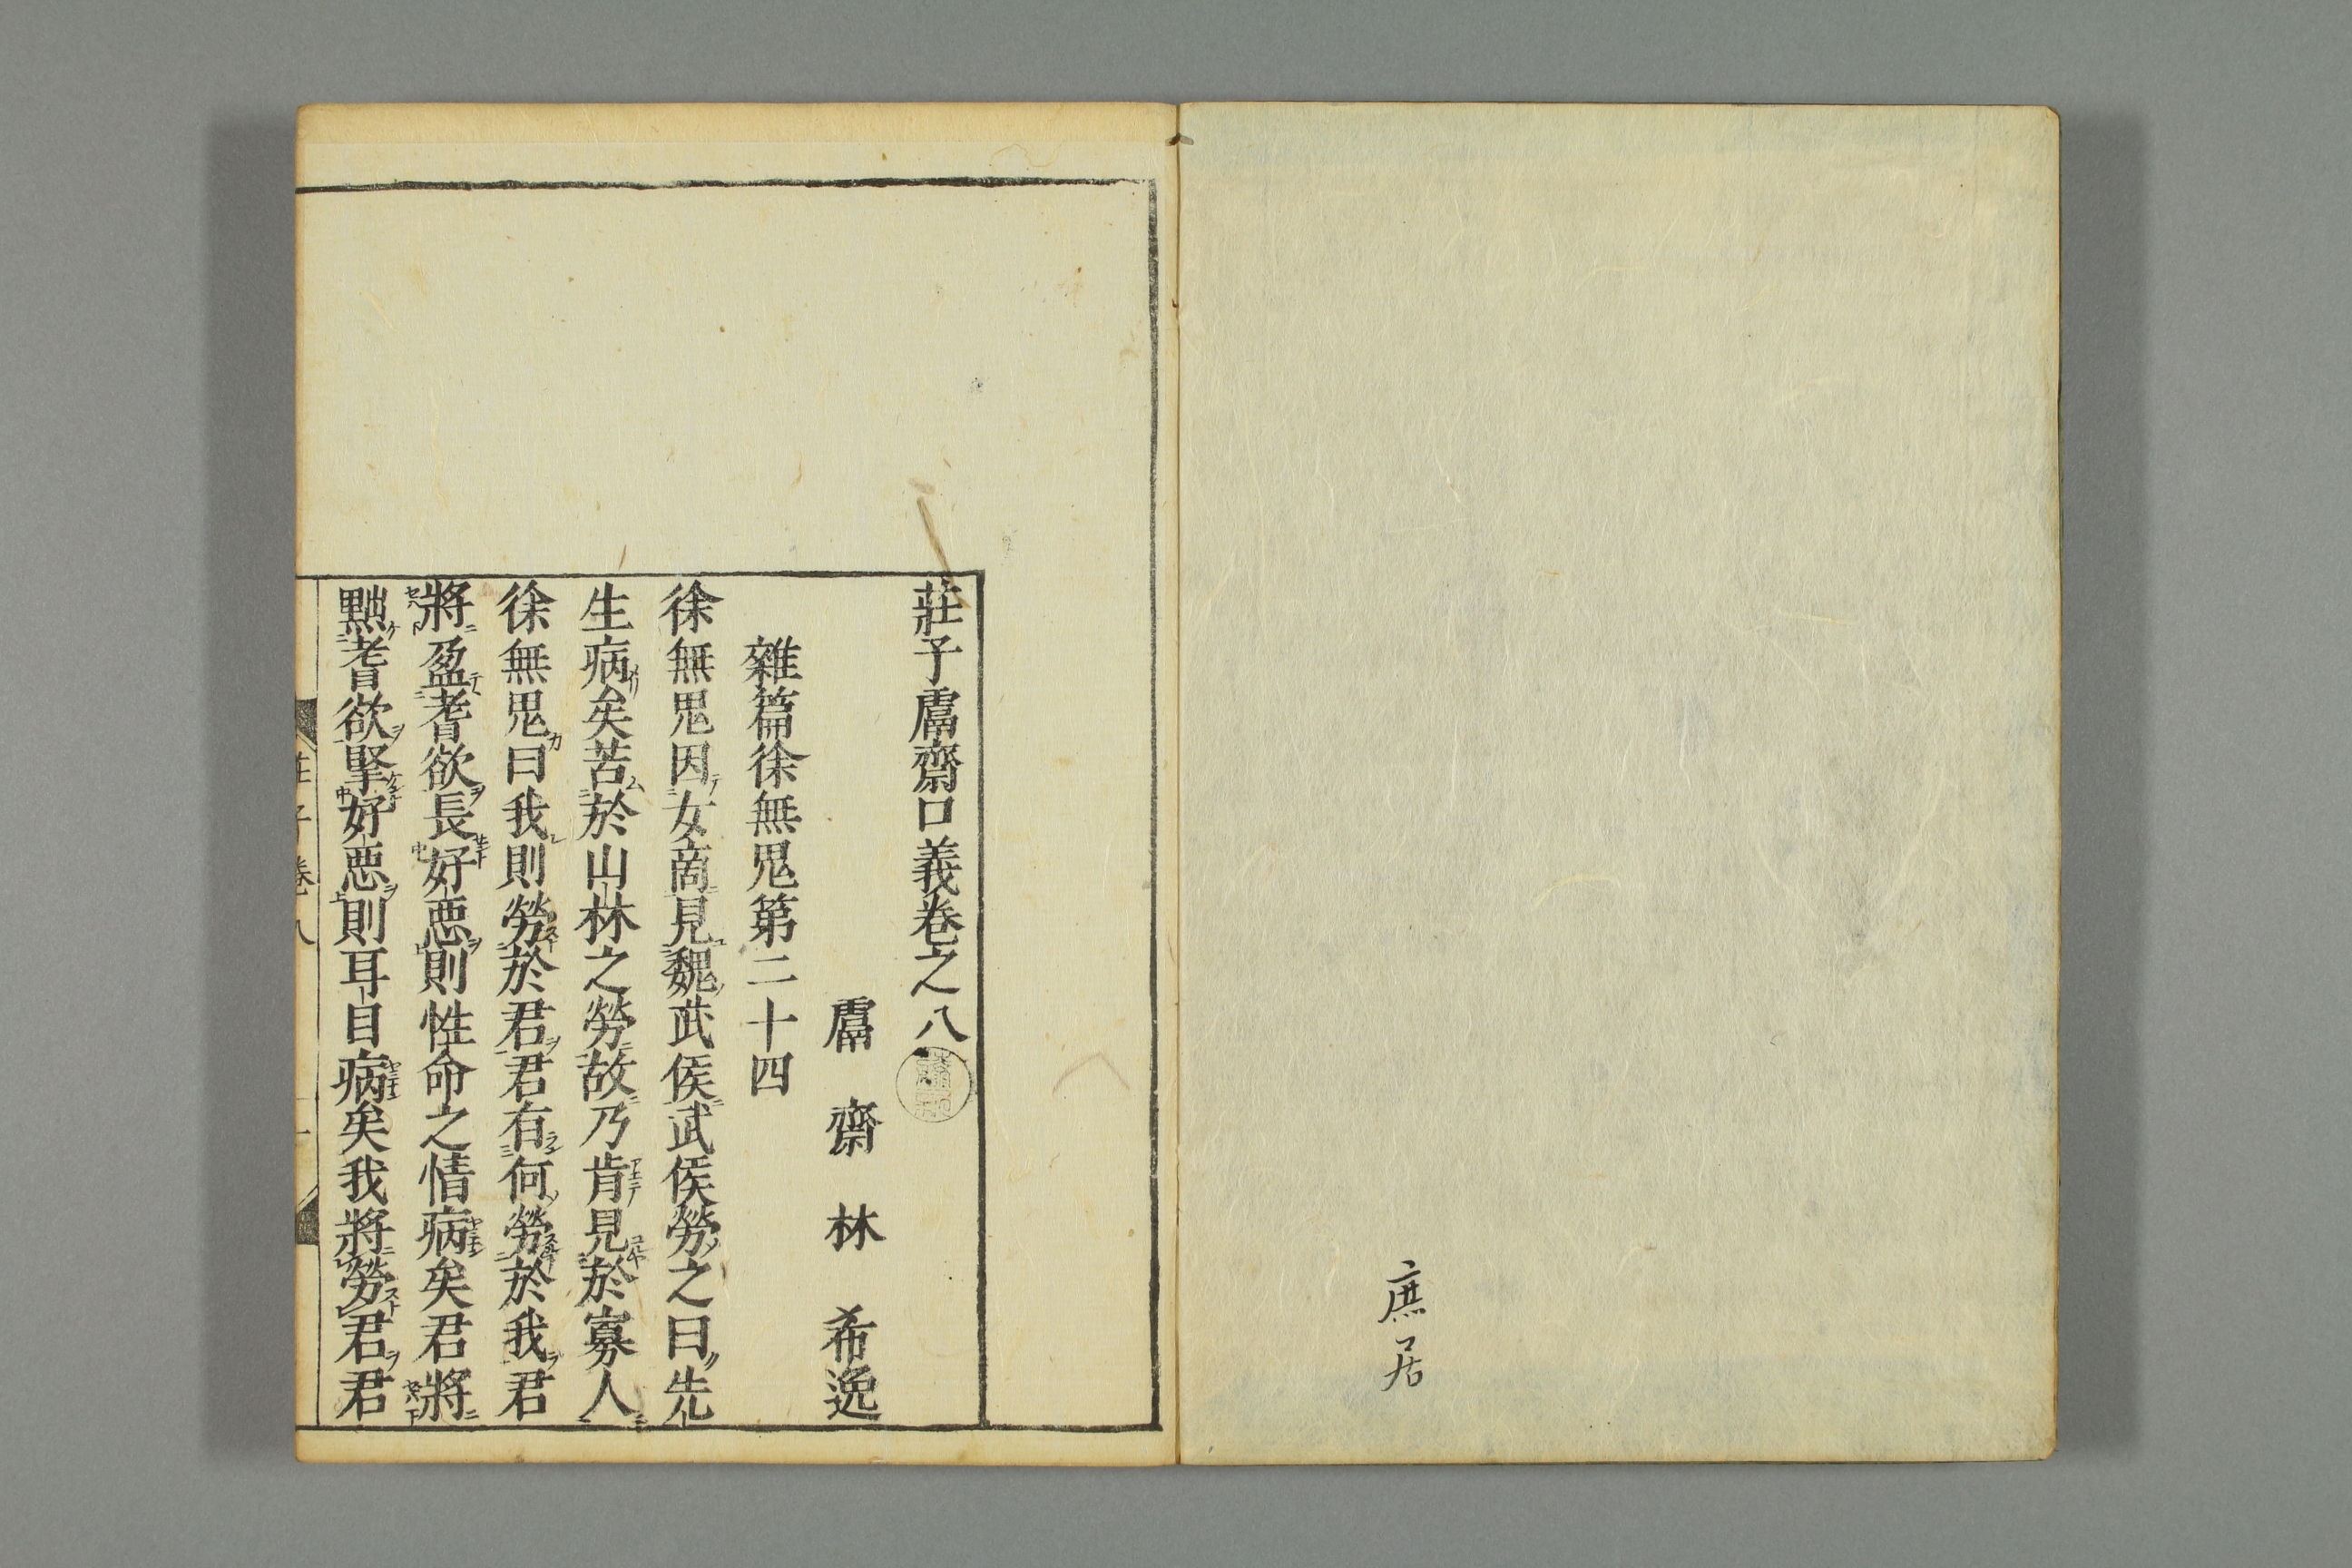 庶居
莊子鬳齋口義卷之八
鬳齋林希逸
雜篇徐無鬼第二十四
徐無鬼因女啇見魏武侯武侯勞之曰先
生病矣苦於山林之勞故乃肯見於寡人
徐無鬼曰我則勞於君君有何勞於我君
將盈耆欲長好惡則性命之情病矣君將
黜耆欲掔好惡則耳目病矣我將勞君君
莊子卷八 一